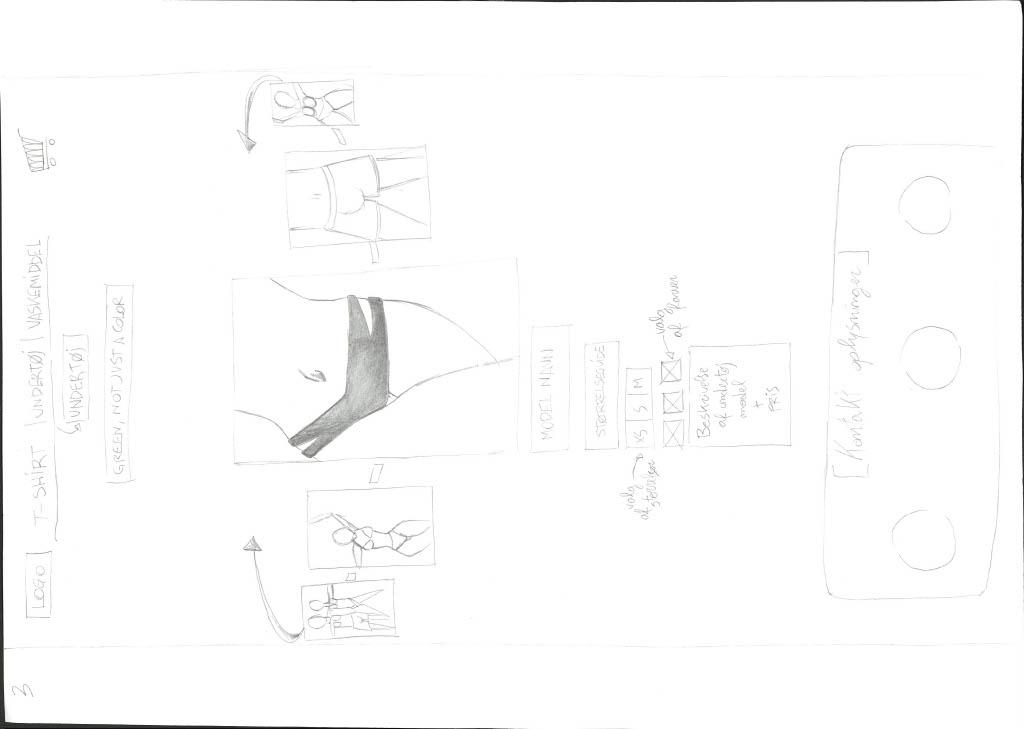 3
LOGO T-SHIRT | UNDERTØJ | VASKEMIDDEL
UNDERTØJ
GREEN, NOT JUST A COLOR
MODEL NAVN
STØRRELSEGUIDE
valg
af
størrelser
XS S M
valg
af farver
Beskrivelse
af undertøj
model
+
PRIS
[Kontakt oplysninger]